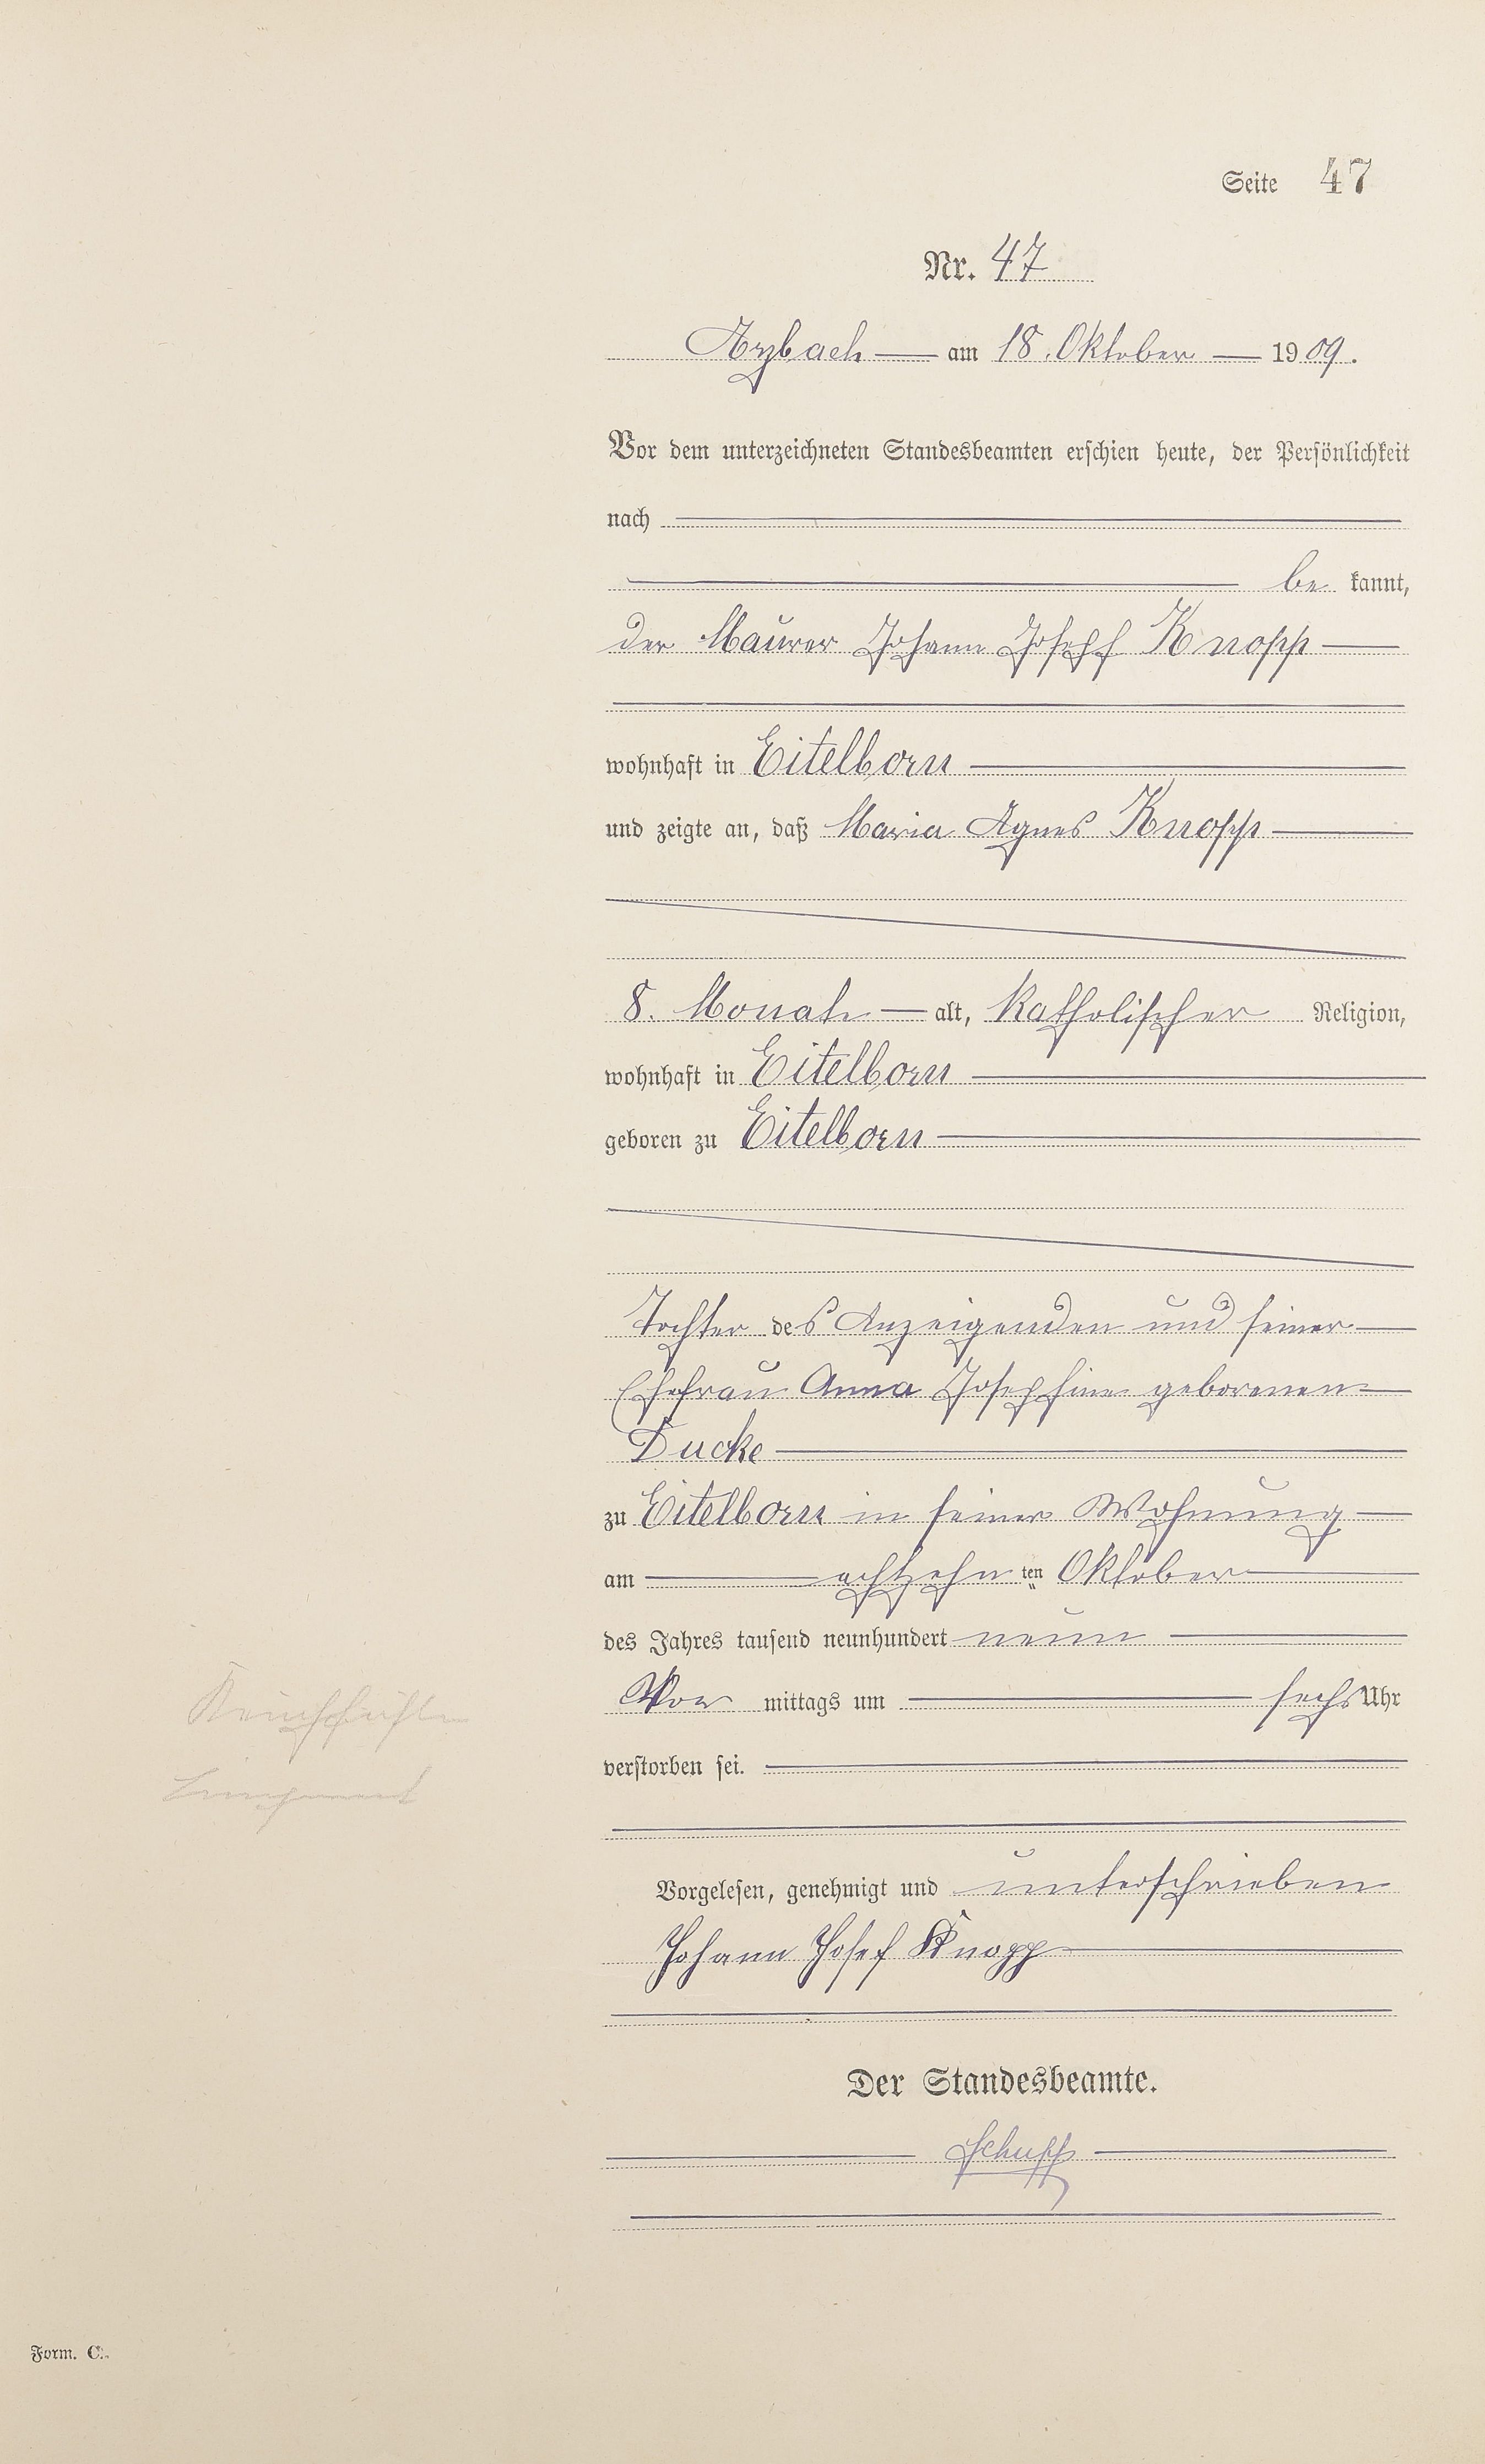 Seite 47
Nr. 47
Arzbach am 18. Oktober 1909.
Vor dem unterzeichneten Standesbeamten erschien heute, der Persönlichkeit
nach
be kannt,
der Maurer Johann Joseph Knopp
wohnhaft in Eitelborn
und zeigte an, daß Maria Agnes Knopp
8. Monate alt, katholischer Religion,
wohnhaft in Eitelborn
geboren zu Eitelborn
Tochter des Anzeigenden und seiner
Ehefrau Anna Josephine geborenen
Ducke
zu Eitelborn in seiner Wohnung
am achtzehn ten Oktober
des Jahres tausend neunhundert neun
Vor mittags um sechs Uhr
verstorben sei.
Vorgelesen, genehmigt und unterschrieben
Johann Josef Knopp
Der Standesbeamte.
Schupp
Form. C.